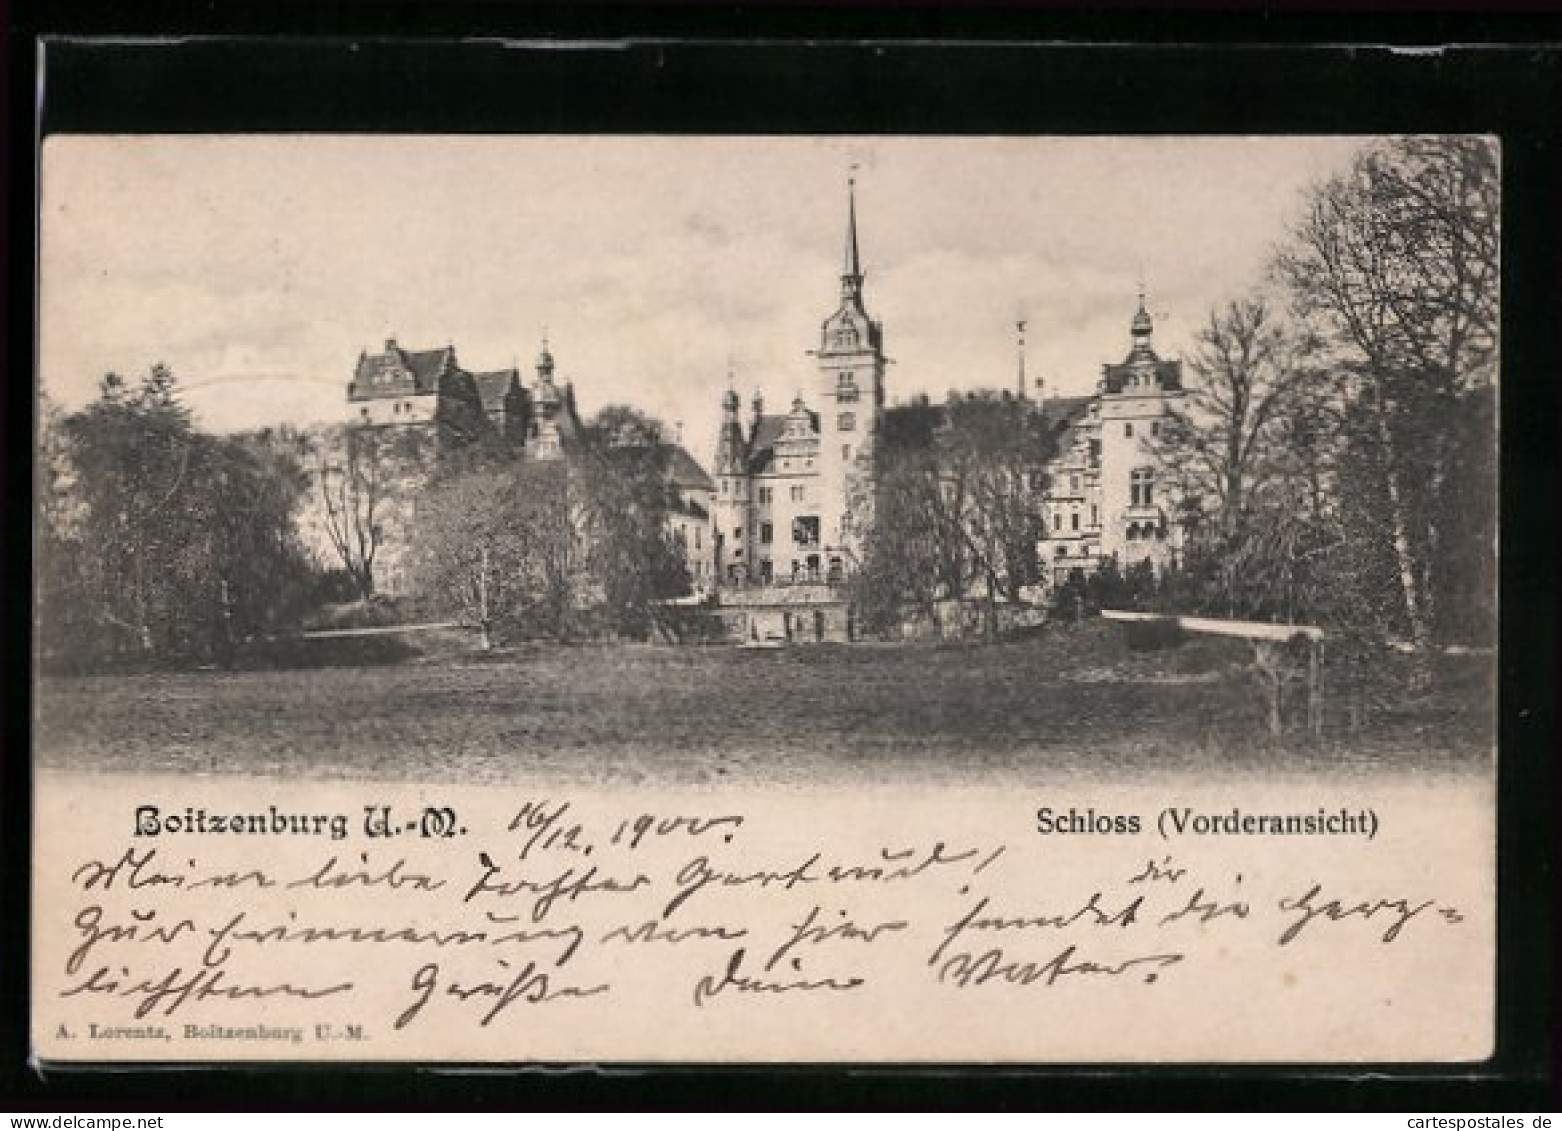 Boitzenburg U.-M. 16/12. 1900.
Schloss (Vorderansicht)
Meine liebe Tochter Gertrud!
Zur Erinnerung von hier sendet dir die herz=
lichsten Grüße Dein Vater.
A. Lorentz, Boitzenburg U.-M.
cartespostales de